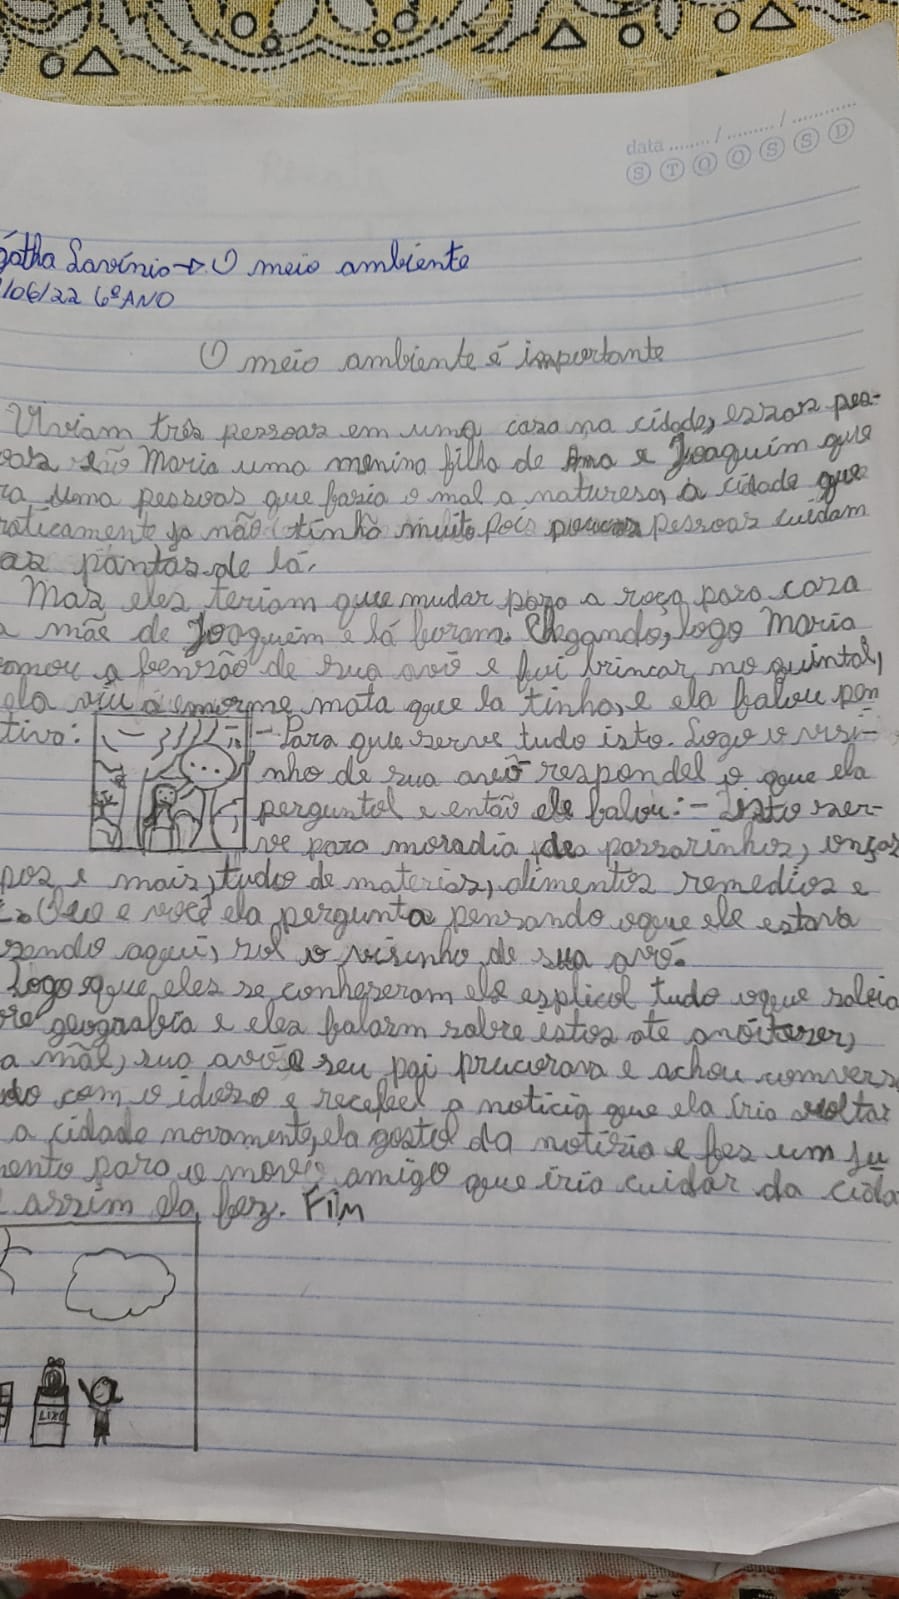 data ......../........./............
S T Q Q S S D
gatha Lavínia → O meio ambiente
/06/22 6º ANO
O meio ambiente é importante
Viviam três pessoas em uma casa na cidade, essas pes-
soas são Maria uma menina filha de Ana e Joaquim que
ra uma pessoas que fasia o mal a naturesa, a cidade que
raticamente ja não tinha muito pois poucas pessoas cuidam
as pantas de lá.
Mas eles teriam que mudar para a roça para casa
a mãe de Joaquim e lá foram. Chegando, logo Maria
omou a bensão de sua avó e foi brincar no quintal,
ela viu a enorme mata que la tinha, e ela falou pen
tivo: - Para que serve tudo isto. Logo o visi-
nho de sua avó respondel o que ela
perguntol e então ele falou: - Isto ser-
ve para moradia de passarinhos, onças
pos e mais, tudo de materias, alimentos remedios e
Oleo e você ela pergunta pensando oque ele estava
zendo aqui, sol o visinho de sua avó.
Logo que eles se conheseram ele esplicol tudo oque sabia
bre geografia e eles falarm sobre istos ate anoiteser,
a mãe, sua avó e seu pai prucurava e achou comvers
do com o idoso e recebel a noticia que ela iria voltar
a cidade novamente, ela gostol da noticia e fes um ju
mento para o novo amigo que iria cuidar da cida
assim ela fez. Fim
LIXO